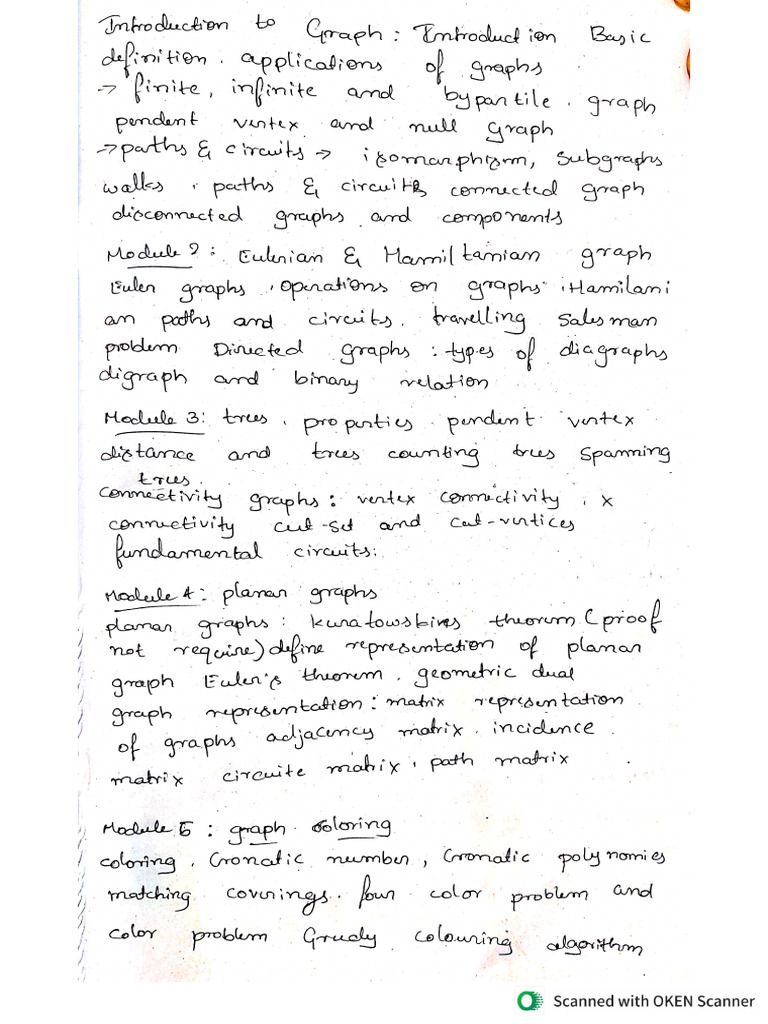 Introduction to Graph : Introduction Basic
definition. applications of graphs
→ finite, infinite and bypartile. graph
pendent vertex and null Graph
→ paths & circuits → isomarphism, subgraphs
walks, paths & circuits connected graph
disconnected graphs and components
Module 2 : Eulerian & Hamiltamian graph
Euler graphs, operations on graphs. Hamilani
an paths and circuits. travelling Sales man
problem Directed graphs : types of diagraphs
digraph and binary relation
Module 3: trees, properties pendent vertex
distance and trees counting trees spanning
trees.
Connectivity graphs : vertex connectivity, x
connectivity cut-set and cut-vertices
fundamental circuits.
Module 4 : planar graphs
planar graphs : theorum (proof
not require) define representation of planar
graph Euler's theorem. geometric dual
graph representation : matrix representation
of graphs adjacency matrix. incidence
matrix circuite matrix, path matrix
Module 5 : graph coloring
coloring, Cromatic number, Cromatic polynomies
matching coverings. four color problem and
color problem Grudy colouring algorithm
Scanned with OKEN Scanner